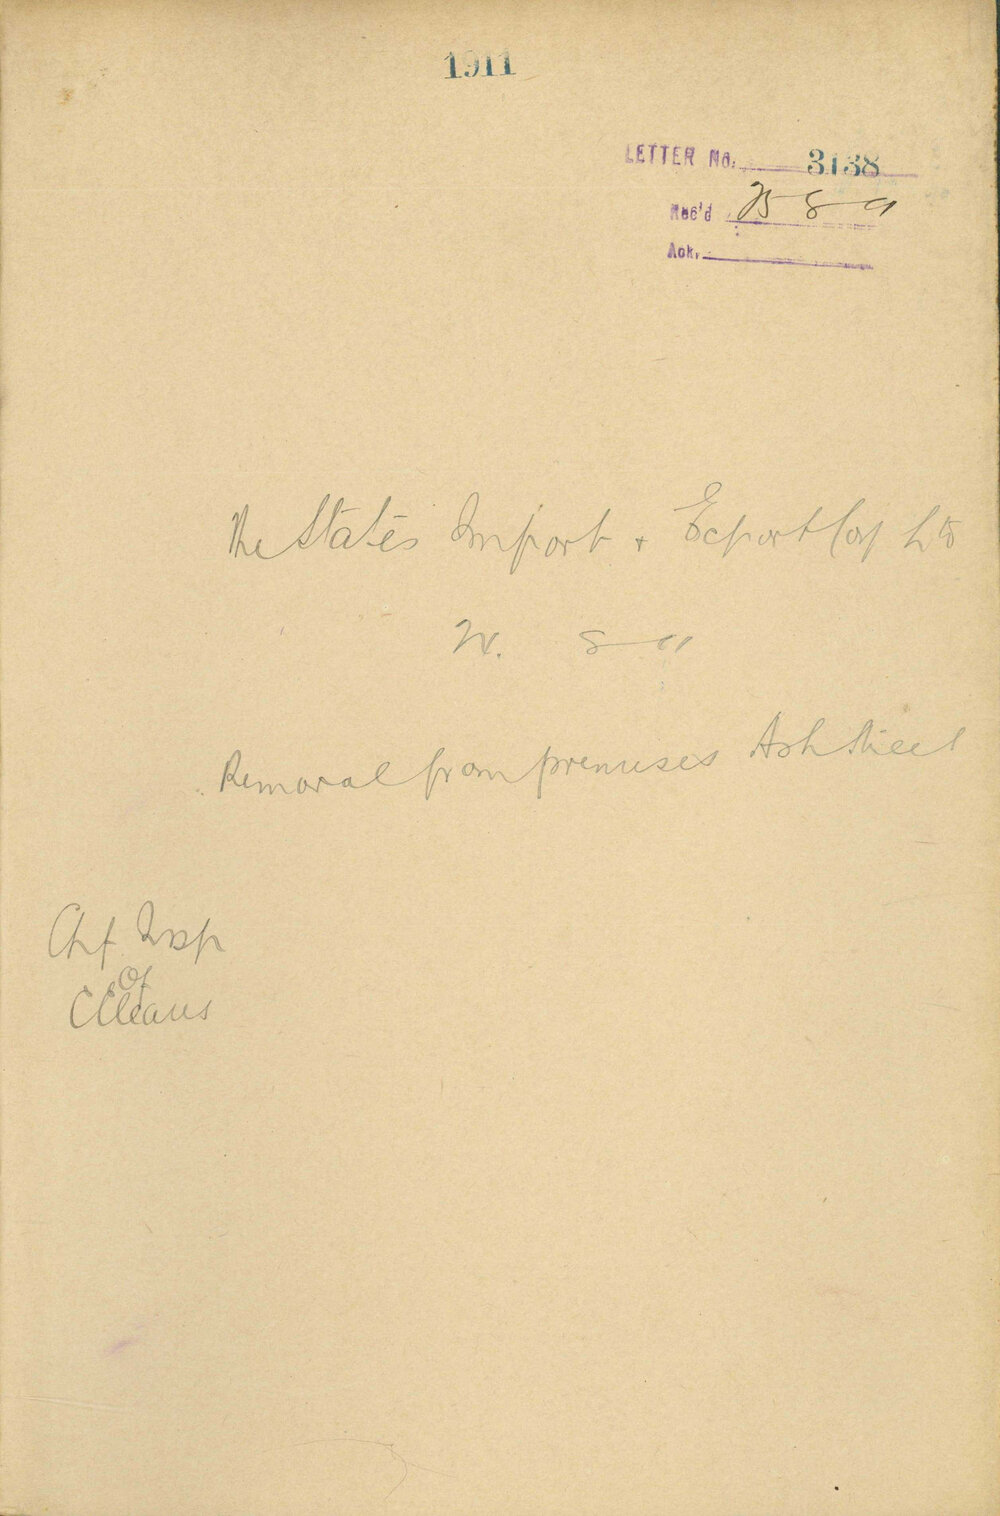 1911
LETTER No. 3138
Rec'd 25 8 11
Ack.
The States Import & Export Coy Ltd
24. 8 11
Removal from premises Ash Street
Chf Insp
Of
CCleans